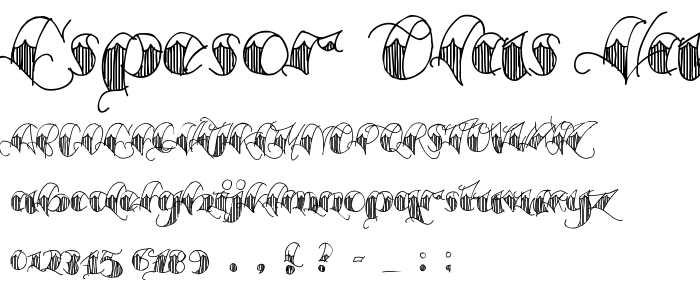 Espesor Olas Na
ABCDEFGHIJKLMNOPQRSTUVWXYZ
abcdefghijklmnopqrstuvwxyz
012345 6789 . , ! ? - _ : ;